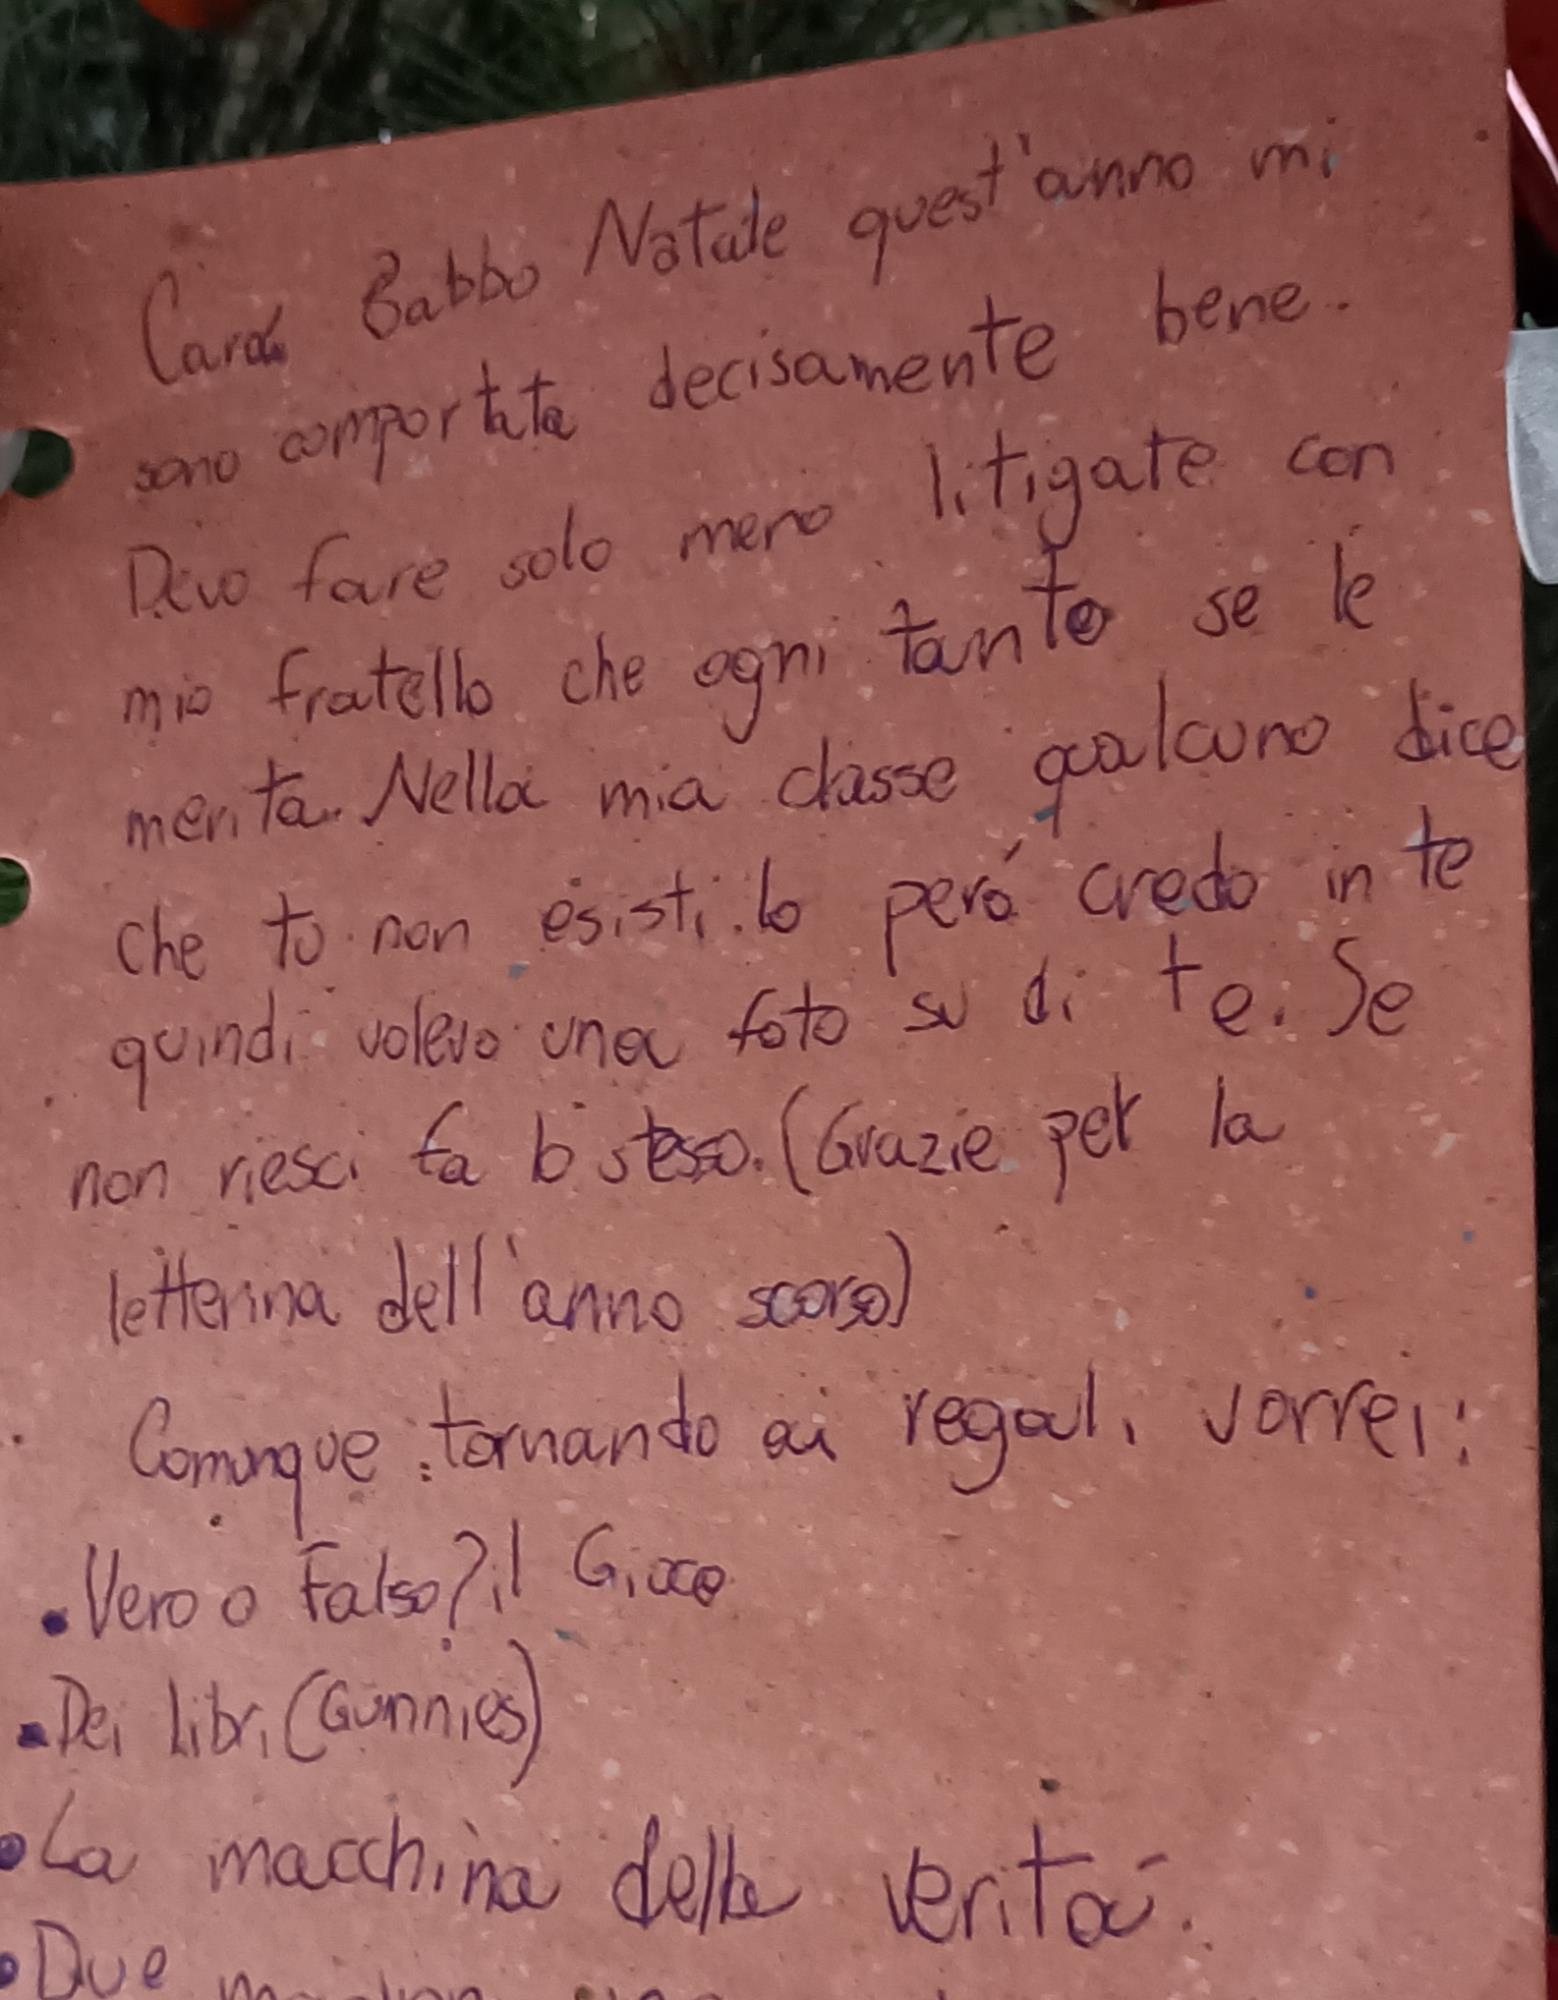 Caro Babbo Natale quest'anno mi
sono comportata decisamente bene.
Devo fare solo meno litigate con
mio fratello che ogni tanto se le
merita. Nella mia classe qualcuno dice
che tu non esisti. Io però credo in te
quindi volevo una foto su di te. Se
non riesci fa lo stesso. (Grazie per la
letterina dell'anno scorso)
Comunque tornando ai regali vorrei:
• Vero o Falso? il Gioco
• Dei libri (Gunnies)
• La macchina della verità.
• Due